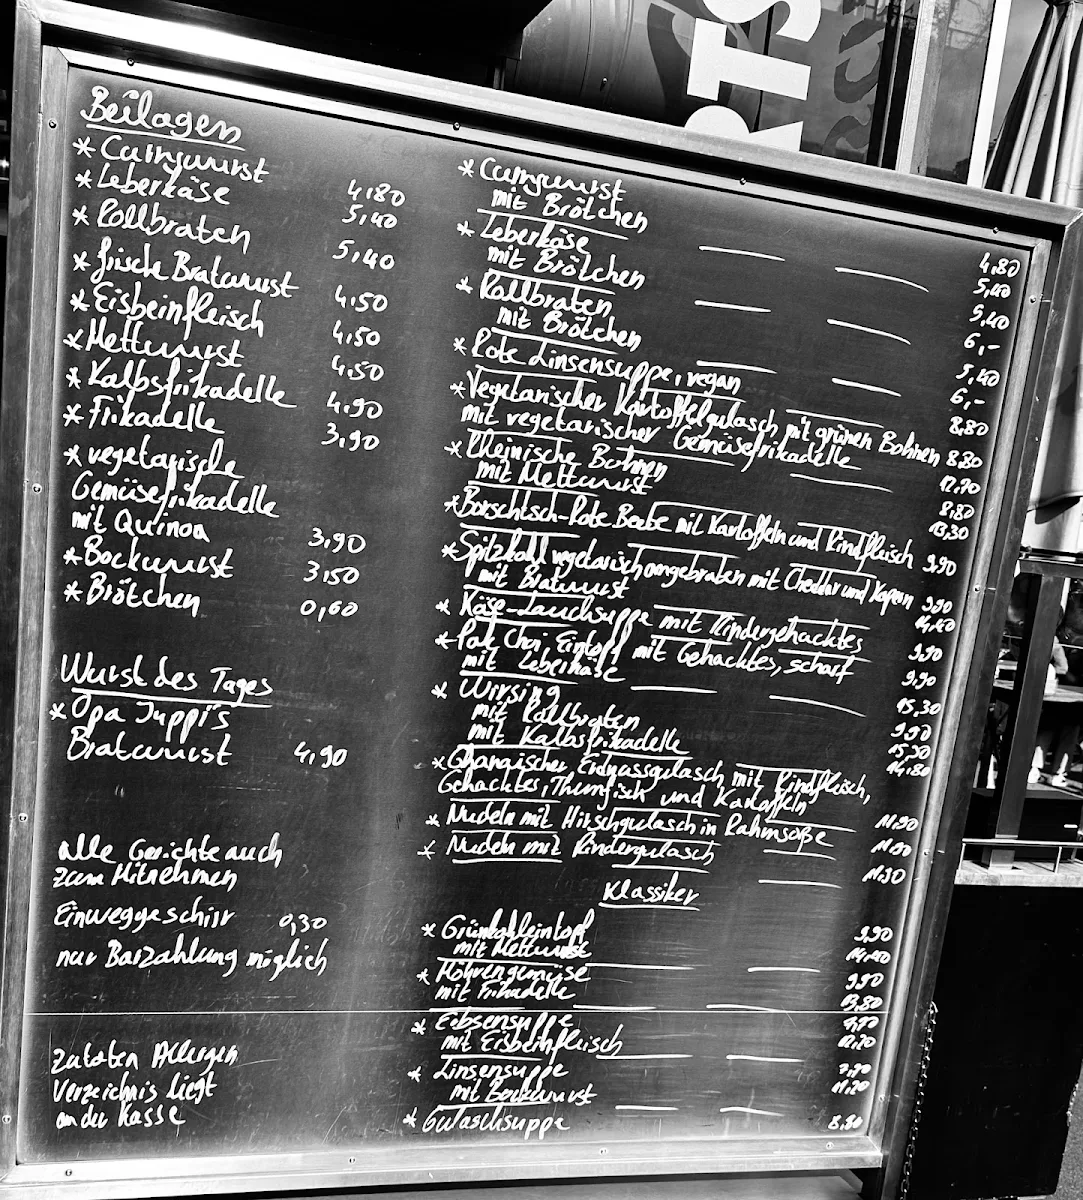 Beilagen
* Currywurst 4,80
* Leberkäse 5,40
* Rollbraten 5,40
* frische Bratwurst 4,50
* Eisbeinfleisch 4,50
* Mettwurst 4,50
* Kalbsfrikadelle 4,90
* Frikadelle 3,90
* vegetarische
Gemüsefrikadelle
mit Quinoa 3,90
* Bockwurst 3,50
* Brötchen 0,60
Wurst des Tages
* Opa Juppi's
Bratwurst 4,90
alle Gerichte auch
zum Mitnehmen
Einweggeschirr 0,30
nur Barzahlung möglich
Zutaten Allergen
Verzeichnis liegt
an der Kasse
* Currywurst 4,80
mit Brötchen 5,40
* Leberkäse 5,40
mit Brötchen 6,-
* Rollbraten 5,40
mit Brötchen 6,-
* Rote Linsensuppe, vegan 8,80
* Vegetarischer Kartoffelgulasch mit grünen Bohnen 8,80
mit vegetarischer Gemüsefrikadelle 12,70
* Rheinische Bohnen 8,80
mit Mettwurst 13,30
* Borschtsch-Rote Beete mit Kartoffeln und Rindfleisch 9,90
* Spitzkohl vegetarisch angebraten mit Cheddar und Kapern 9,90
mit Bratwurst 14,40
* Käse-Lauchsuppe mit Rindergehacktes 9,90
* Pak Choi Eintopf mit Gehacktes, scharf 9,90
mit Leberkäse 15,30
* Wirsing 9,90
mit Rollbraten 15,30
mit Kalbsfrikadelle 14,80
* Ghanaischer Erdnussgulasch mit Rindfleisch,
Gehacktes, Thunfisch und Kartoffeln 11,90
* Nudeln mit Hirschgulasch in Rahmsoße 11,90
* Nudeln mit Rindergulasch 11,90
Klassiker
* Grünkohleintopf 9,90
mit Mettwurst 14,40
* Möhrengemüse 9,90
mit Frikadelle 13,80
* Erbsensuppe
mit Eisbeinfleisch
* Linsensuppe
mit Bockwurst
* Gulaschsuppe